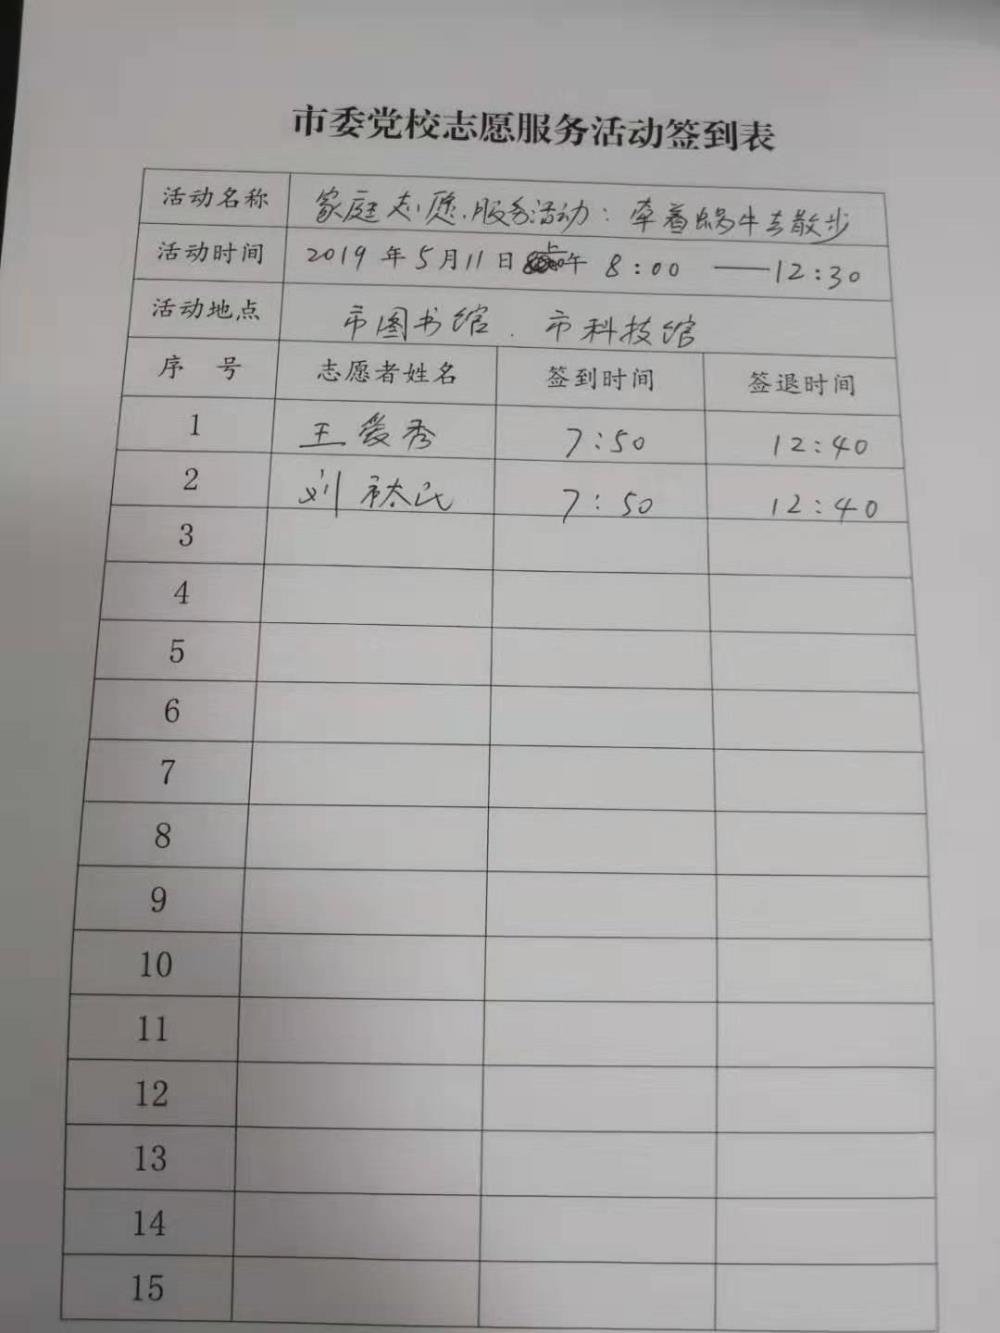 市委党校志愿服务活动签到表
活动名称 家庭志愿服务活动：牵着蜗牛去散步
活动时间 2019年5月11日上午 8:00 —— 12:30
活动地点 市图书馆．市科技馆
序 号 志愿者姓名 签到时间 签退时间
1 王爱秀 7:50 12:40
2 刘 7:50 12:40
3
4
5
6
7
8
9
10
11
12
13
14
15